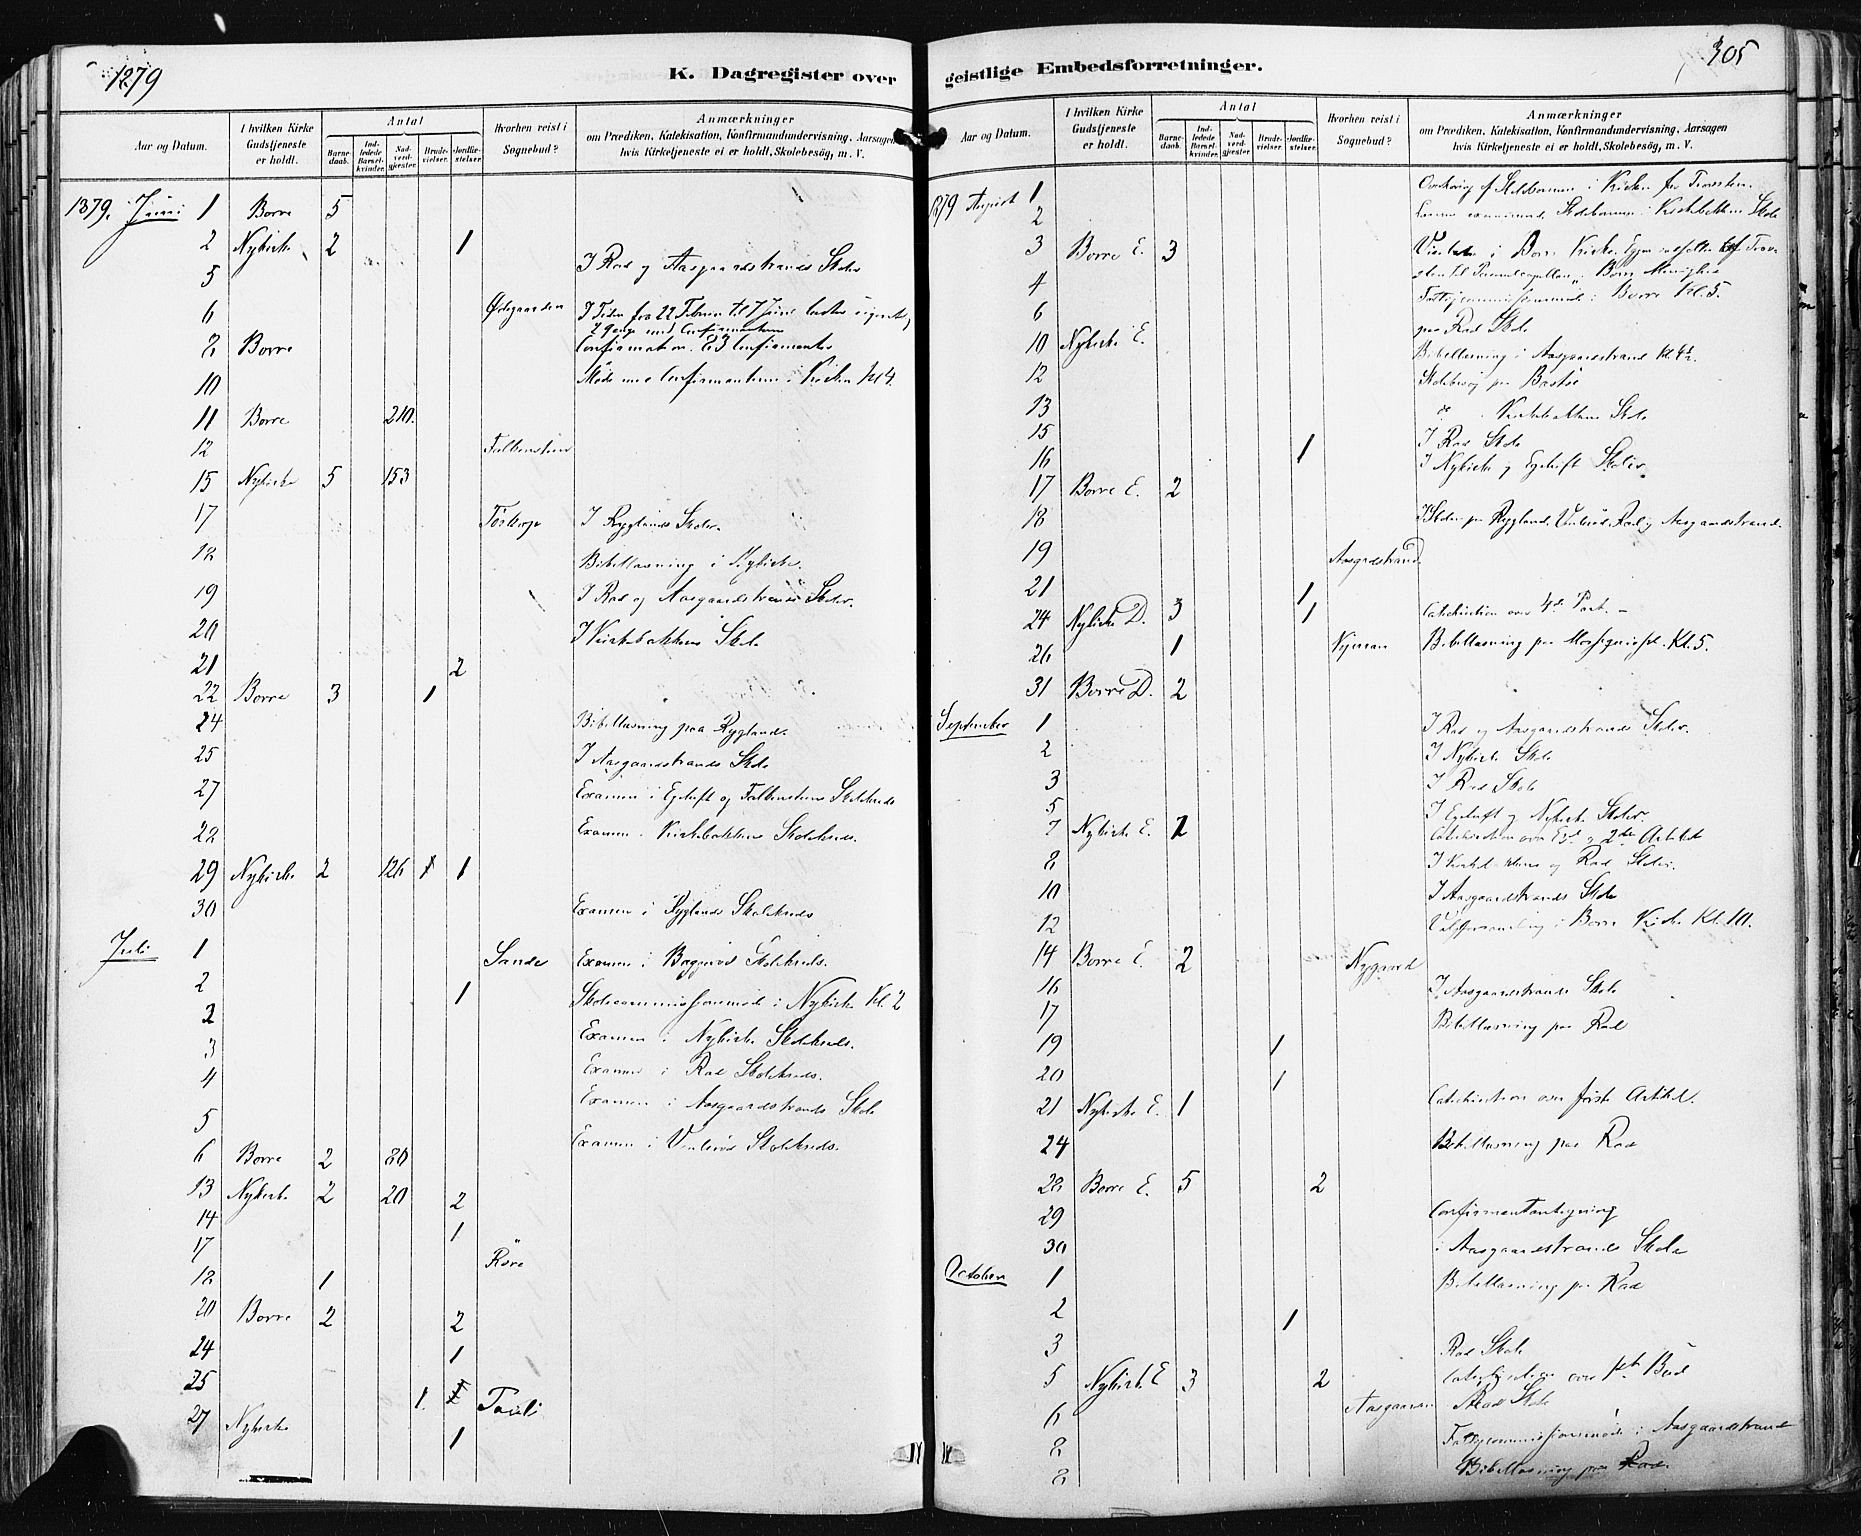 1879
K. Dagregister over
Aar og Datum.
I hvilken Kirke Gudstjeneste er holdt.
Antal
Barnedaab.
Indledede Barselkvinder.
Nadverdgjester.
Brudevielser.
Jordfæstelser.
Hvorhen reist i Sognebud?
Anmærkninger
om Prædiken, Katekisation, Konfirmandundervisning, Aarsagen
hvis Kirketjeneste ei er holdt, Skolebesög, m. V.
1879. Juni 1 Borre 5
2 Nykirke 2 1
5 I Rød og Aasgaardstrands Skoler
6 Ødegaarden
8 Borre Confirmation. 23 Confirmanter
10 Møde med Confirmanterne i Kirken Kl 4.
11 Borre 210.
12 Falkensteen
15 Nykirke 5 153
17 I Ryglands Skoler.
18 Bibellæsning i Nykirke.
19 I Rød og Aasgaardstrands Skoler.
20 I Kirkebakkens Skole
21 2
22 Borre 3 1
24 Bibellæsning paa Rygland.
25 I Aasgaardstrands Skole
27 Examen i Egeløft og Falkensteens Skolekreds
28 Examen i Kirkebakkens Skolekreds.
29 Nykirke 2 126 1 1
30 Examen i Ryglands Skolekreds
Juli 1 Sande Examen i Skolekreds.
2 1 Skolecommissionsmøde i Nykirke Kl. 2
2 Examen i Nykirke Skolekreds.
3 Examen i Rød Skolekreds.
4 Examen i Aasgaardstrands Skole
5 Examen i Skolekreds.
6 Borre 2 80
13 Nykirke 2 20 2
14 1
17 Røre
18 1
20 Borre 2 2
24 1
25 1.
27 Nykirke 1
305
geistlige Embedsforretninger.
Aar og Datum.
I hvilken Kirke Gudstjeneste er holdt.
Antal
Barnedaab.
Indledede Barselkvinder.
Nadverdgjester.
Brudevielser.
Jordfæstelser.
Hvorhen reist i Sognebud?
Anmærkninger
om Prædiken, Katekisation, Konfirmandundervisning, Aarsagen
hvis Kirketjeneste ei er holdt, Skolebesög, m. V.
1879 August 1
2 Skolebørnene i Kirkebakkens Skole
3 Borre E. 3 i Borre Kirke
4 Borre Menighed
6 Fattigcommissionsmøde i Borre Kl. 5.
paa Rød Skole
10 Nykirke E. Bibellæsning i Aasgaardstrand
12 Skolebesøg paa Bastø
13 Kirkebakkens Skole
15 1 I Rød Skole
16 I Nykirke og Egeløft Skoler.
17 Borre E. 2
18 I Skolen paa Rygland, Rød og Aasgaardstrand.
19 Aasgardstrand
21 1
24 Nykirke D. 3 1 Catechisation over 4de Part.
26 1 Bibellæsning paa Kl. 5.
31 Borre D. 2
September 1 I Rød og Aasgaardstrands Skoler.
2 I Nykirke Skole
3 I Rød Skole
5 I Egeløft og Nykirke Skoler.
7 Nykirke E. 2 Catechisation over 2den Artikel
8 og Rød Skoler.
10 I Aasgaardstrands Skole
12 i Borre Kirke Kl. 10.
14 Borre E. 2 Nygaard
16 I Aasgaardstrands Skole
17 Bibellæsning paa Rød
19 1
20 1
21 Nykirke E. 1 Catechisation over første Artikel.
24 Bibellæsning paa Rød
28 Borre E. 5 2
29 Confirmantantegning
30 i Aasgaardstrands Skole
October 1 Bibellæsning paa Rød
2 1
3 Rød Skole
5 Nykirke E 3 2 over 1ste Bud
6 Aasgaarden Rød Skole
8 Fattigcommissionsmøde i Aasgaardstrand
8 Bibellæsning paa Rød.